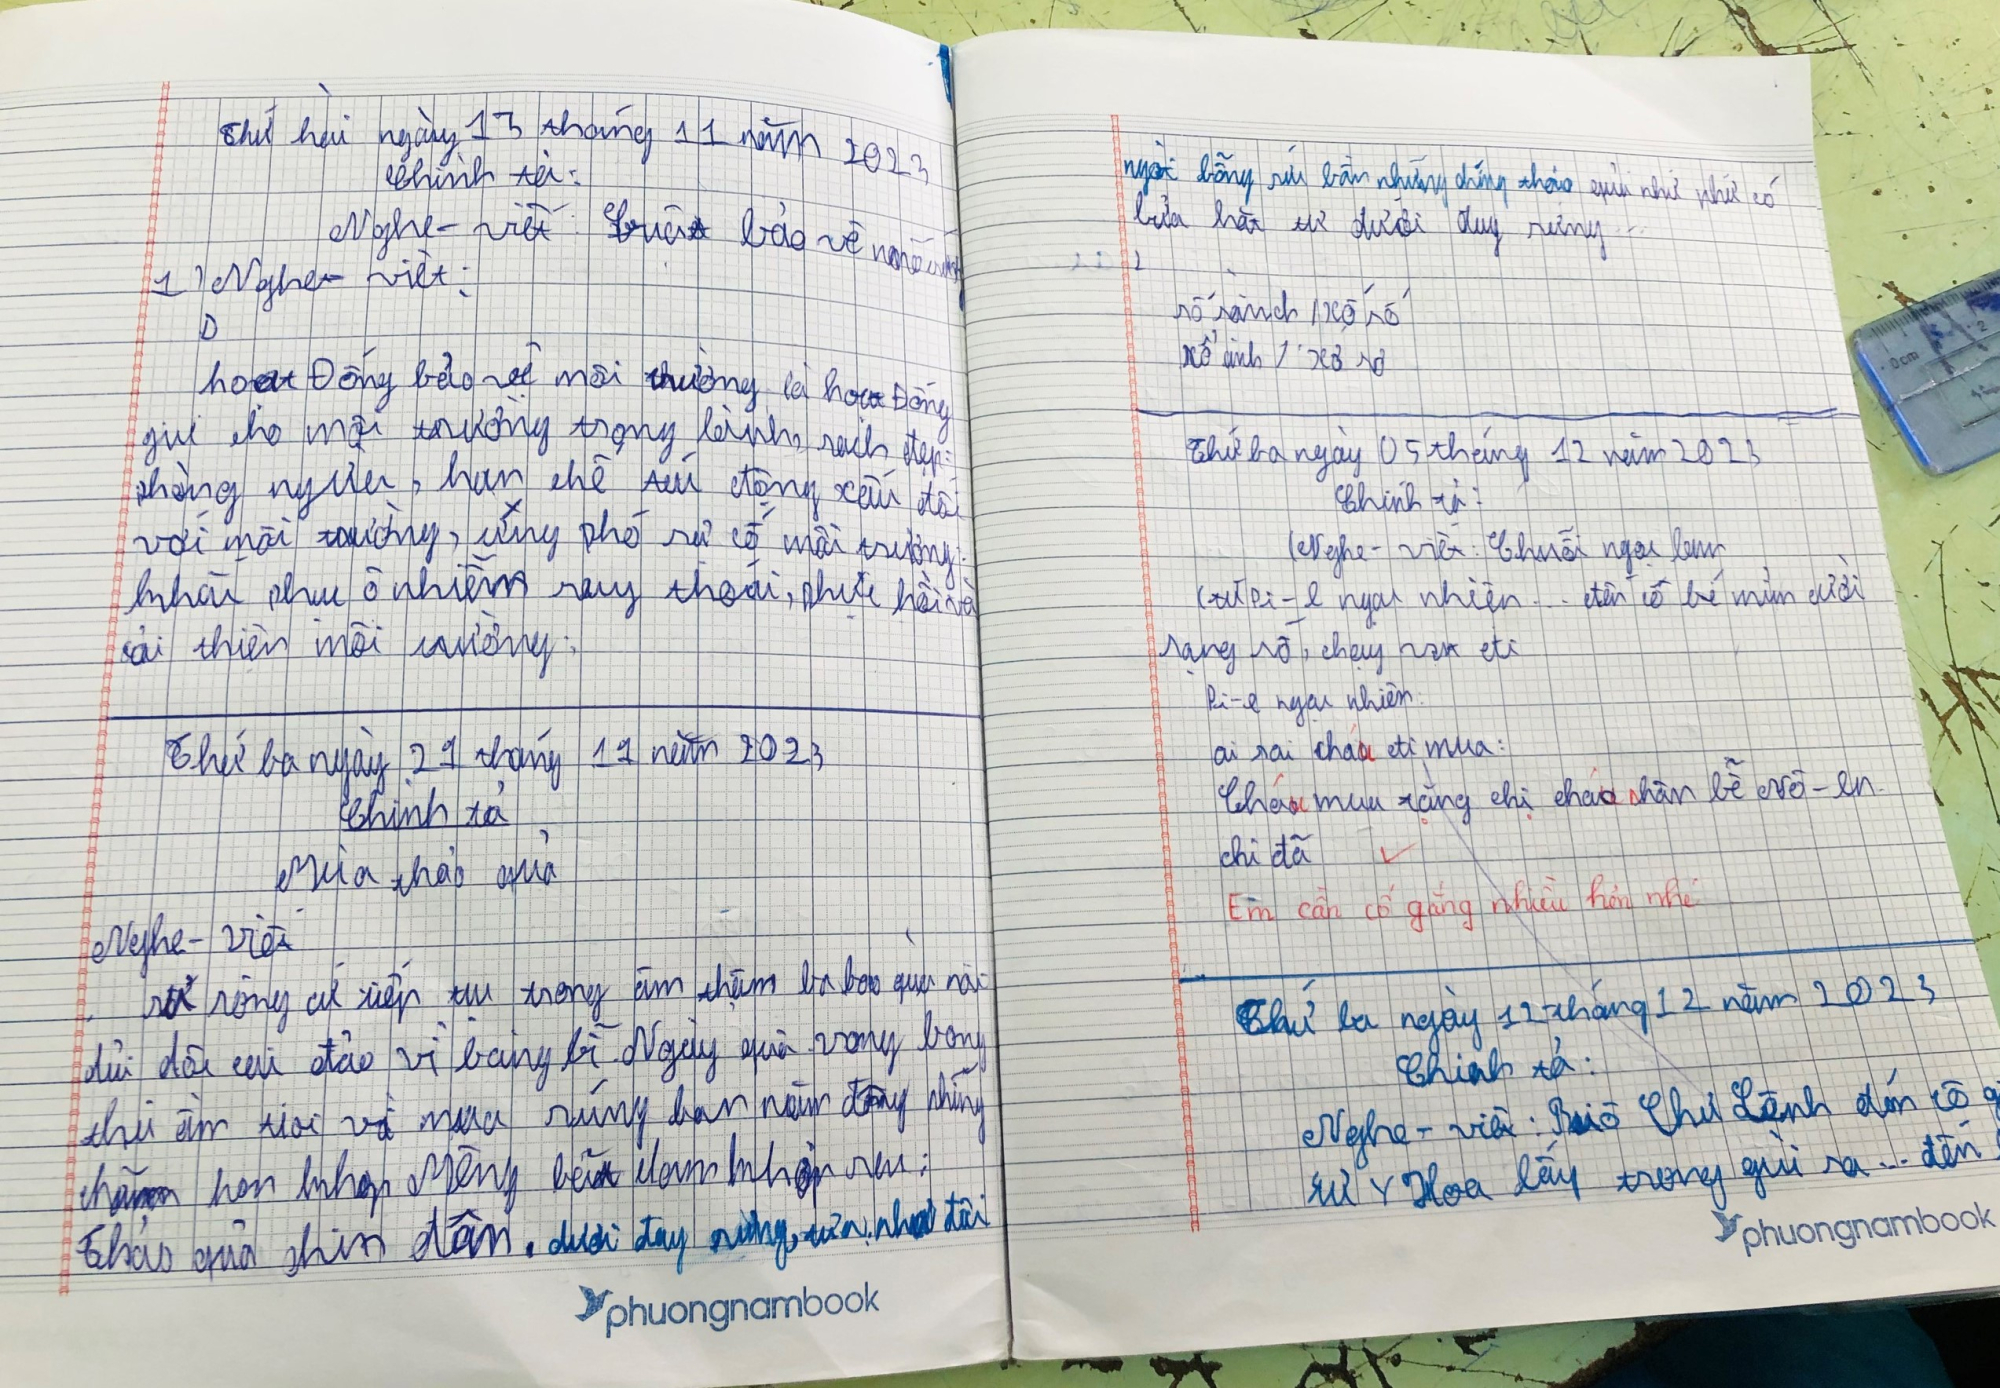 Thứ hài ngày 13 tháng 11 năm 2023
Chình tả:
Nghe-viết: Luật bảo vệ
1) Nghe- viết:
D
hoạt Đống bảo vệ môi thường là hoạt Đống
giư cho môi trường trọng lành, sạch đẹp
phòng ngừu, hạn chế đông xấu đối
với môi trường, ứng phó sử cố môi trường:
khắi phụ ô nhiễm suy thoái, phực hồi và
cải thiên môi trường.
Thứ ba ngày 21 tháng 11 năm 2023
Chính tả
Mùa thảo quả
Nghe- viết
sự rông cứ tiếp tụ trong âm thậm ba bao quù nài
dứi đôi cai đảo vì bàng bĩ. Ngày quà vong bong
thư ẩm và mưa rứng ban năm
hơn khọp Mêng
Thảo quả chin đần. dươi đay rừng,
ngời bỗng rứi bần những chứng thảo quủi như như có
lửa hắt từ dưới đuy rừng...
2
số sành /xố số
xổ inh / xơ sơ
Thứ ba ngày 05 tháng 12 năm 2023
Chính tả:
(Nghe- viết: Chuỗi ngọc lam
(từ Pi-e ngạc nhiên... đến cô bé mỉm cười
rạng rỡ, chạy vụt đi
Pi-e ngạc nhiên.
ai sai cháu đi mua:
Cháu mua tặng chị cháu nhân bễ Nô-en.
chi đã
Em cần cố gắng nhiều hơn nhé
Thứ ba ngày 12 tháng 12 năm 2023
Chính tả:
Nghe- viết: Buô Chư Lênh đón cô g
từ Y Hoa lấy trong gùi ra... đến
phuongnambook
phuongnambook